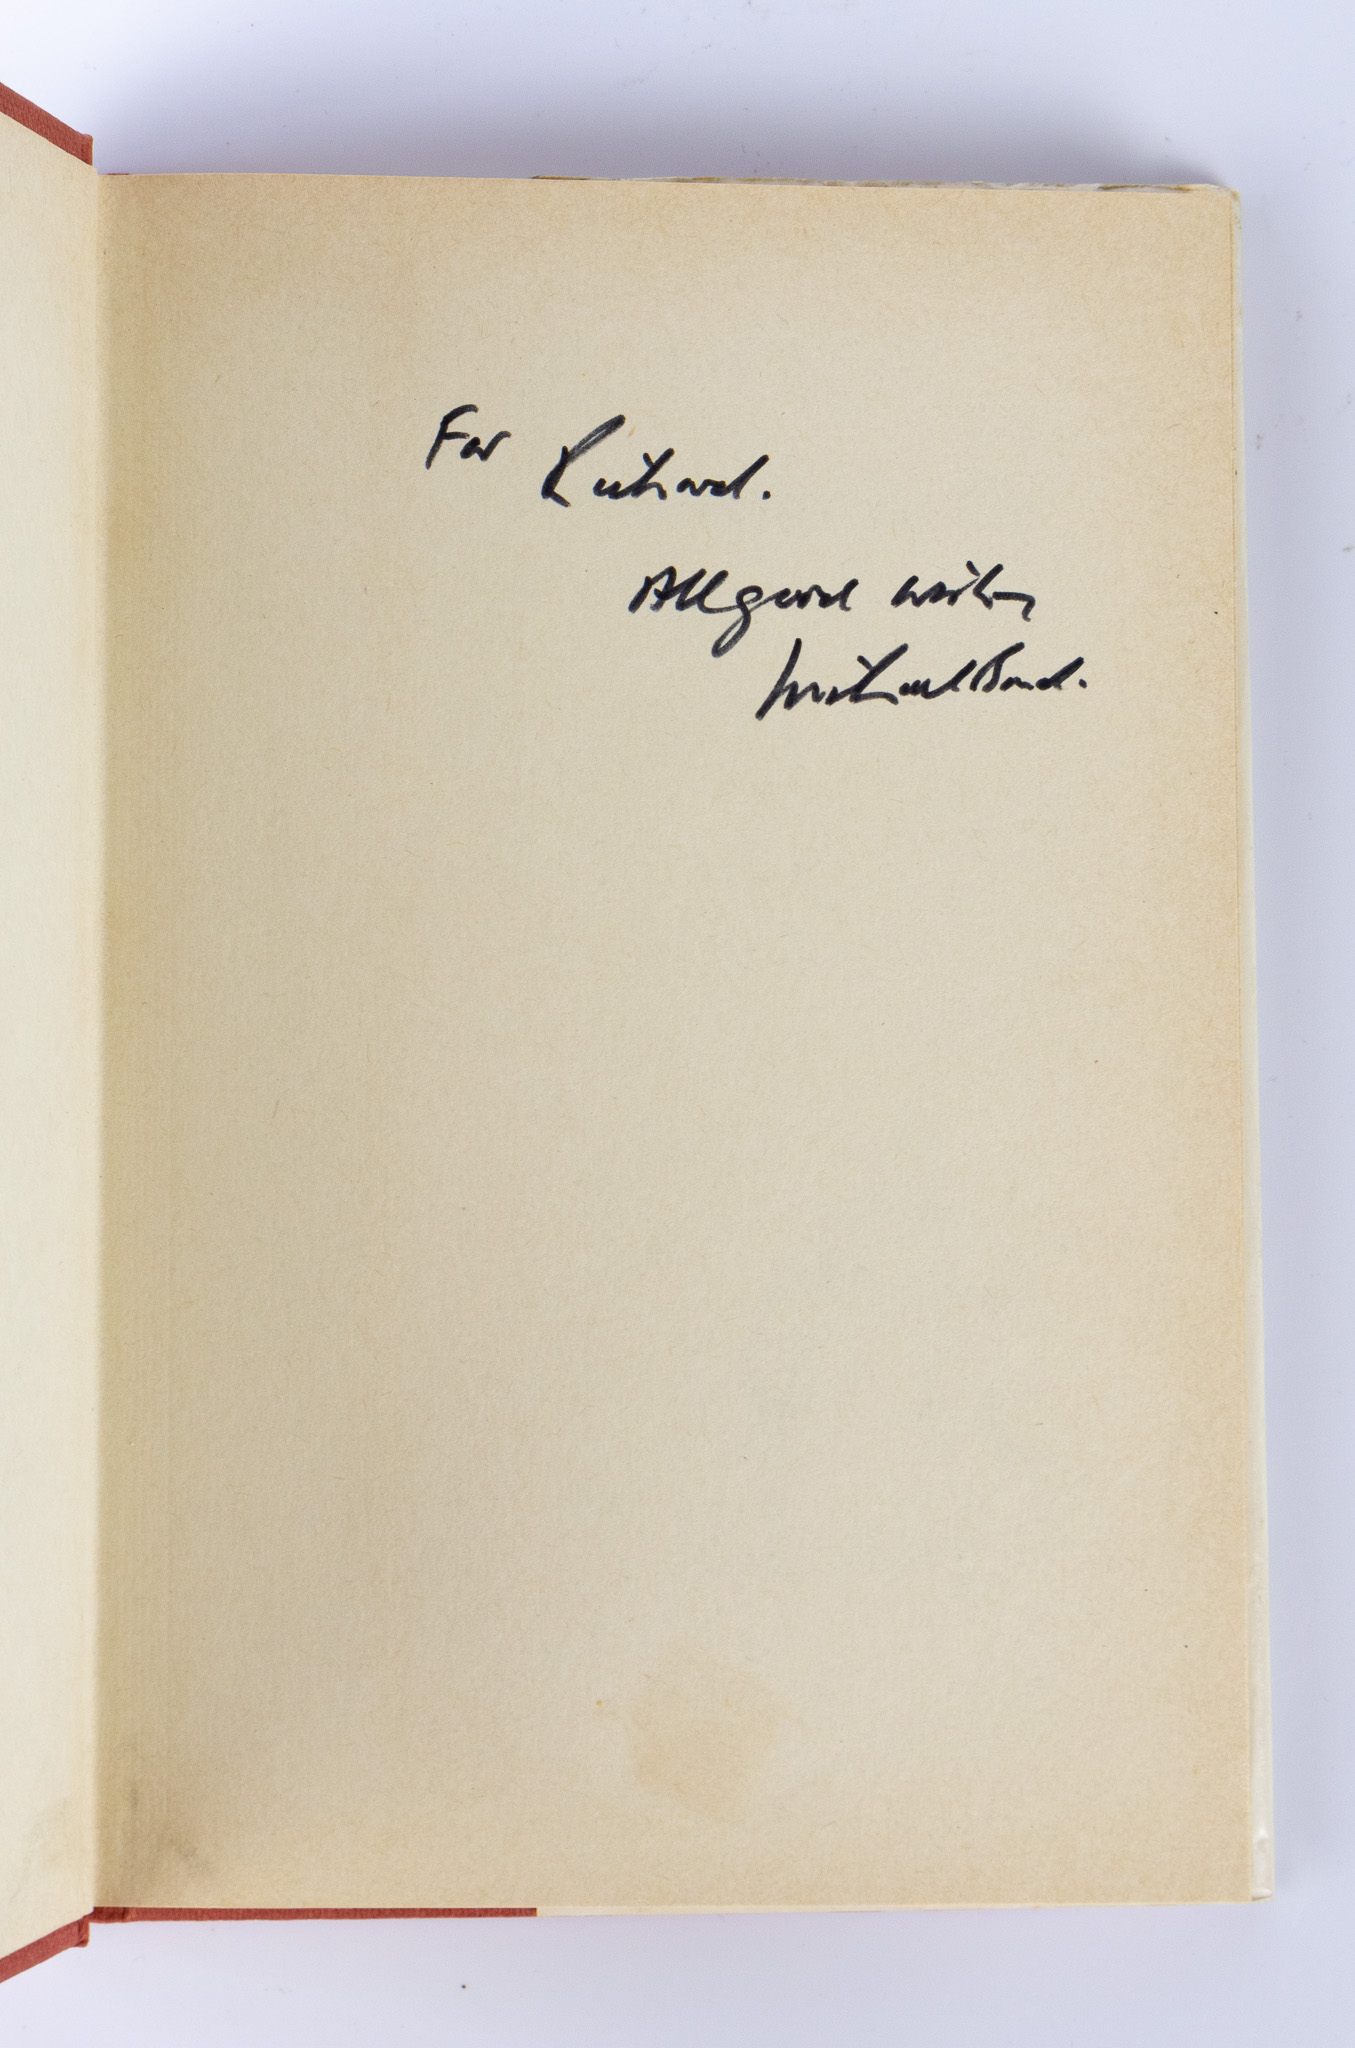 For Richard.
All good wishes
Michael Bond.